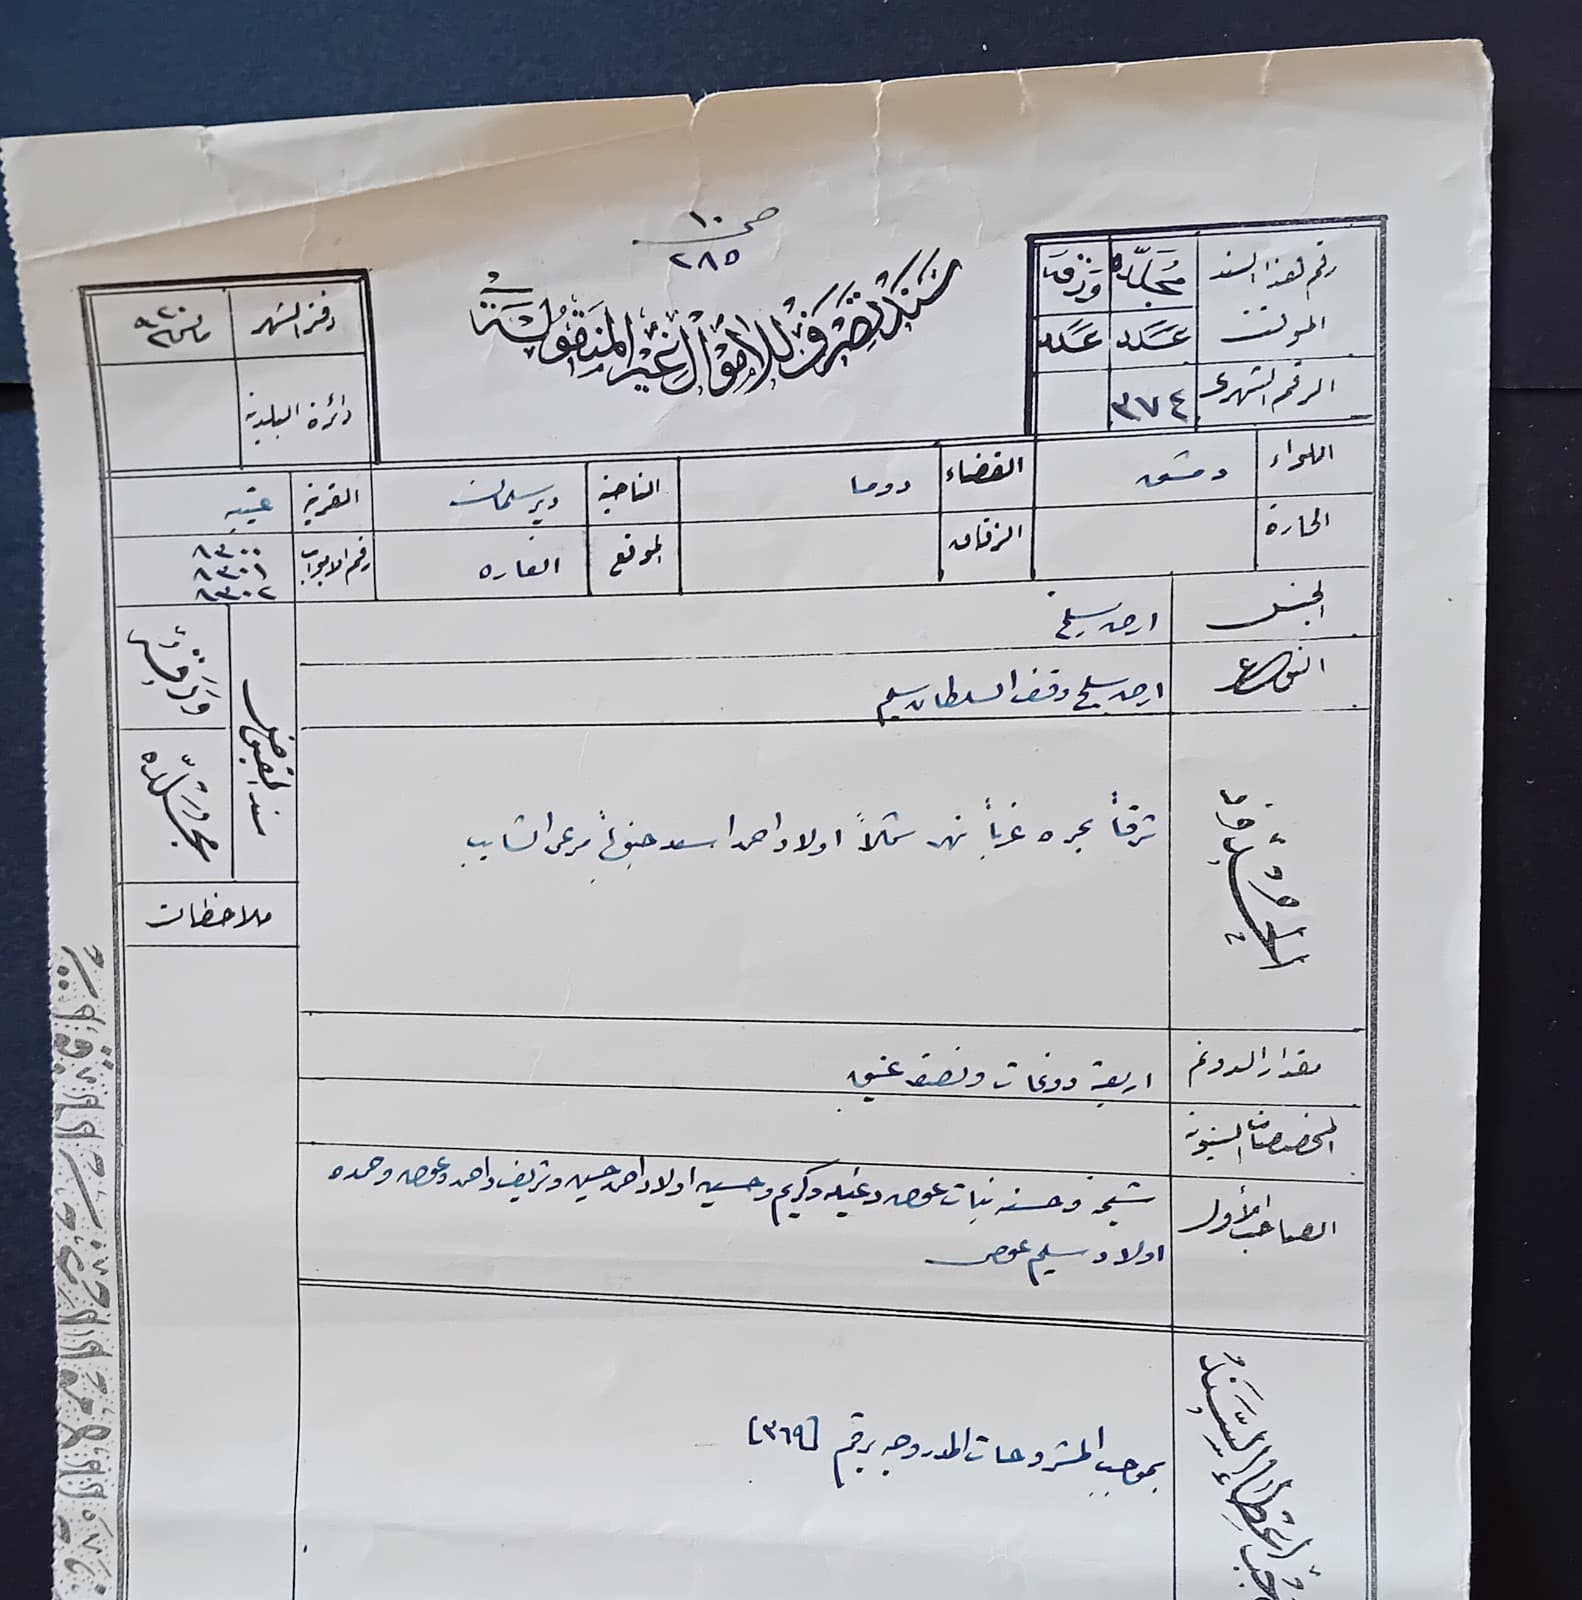 صحـ ١٠
٢٨٥
سند تصرف للأموال غير المنقولة
رقم هذا السند المؤقت
مجلده
ورقه
عدد
عدد
الرقم الشهري
٣٧٤
دفتر الشهر
دائرة البلدية
اللواء
دمشق
القضاء
دوما
الناحية
دير سلمان
القرية
عتيبه
الحارة
الزقاق
الموقع
الغاره
رقم الابواب
٨٣٠٠
٨٣٠١
٨٣٠٢
الجنس
ارض سليخ
النوع
ارض سليخ وقف السلطان سليم
الحدود
شرقاً بحره غرباً نهر شمالاً اولاد احمد اسعد جنوباً مرعي الشايب
مقدار الدونم
اربعة دونمات ونصف عتيق
المخصصات السنوية
الصاحب الأول
شيخه وحسنه بنات عوض وكريم وحسين اولاد احمد حسين وشريف واحمد وعوض وحمده
اولاد سليم عوض
بموجب المشروحات المدروجه برقم [٣٦٩]
سند المقبوض
ورقة
مجلده
ملاحظات